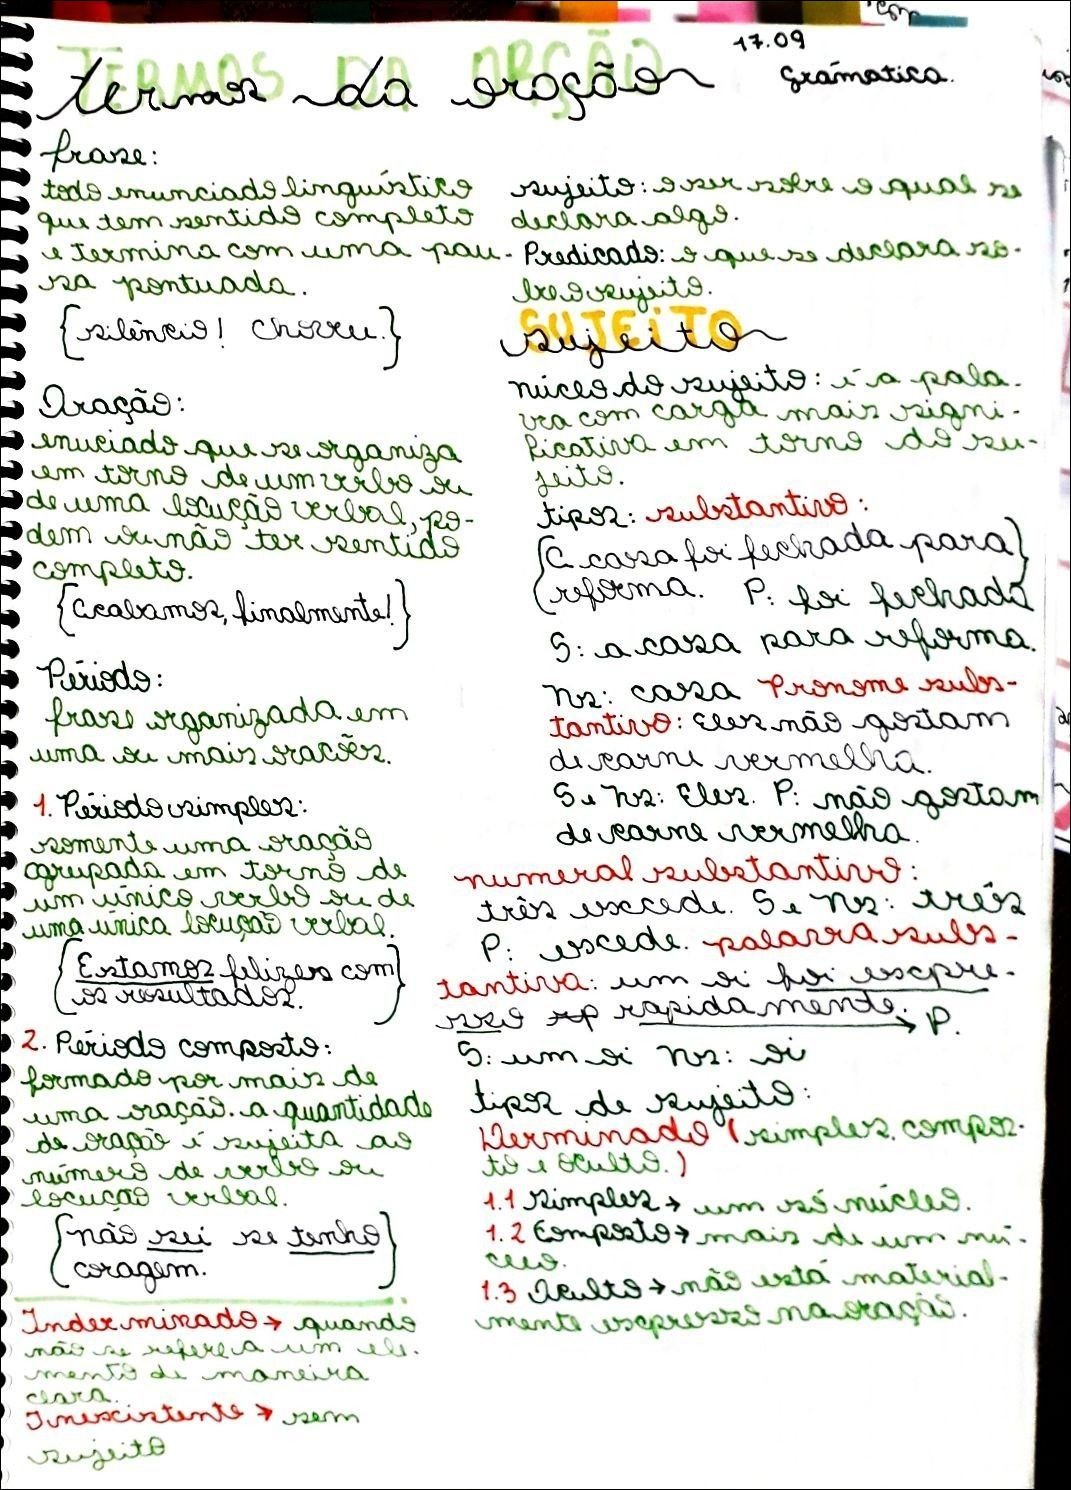 TERMOS DA ORAÇÃO
termos da oração
17.09
Gramática.
frase:
todo enunciado linguístico
que tem sentido completo
e termina com uma pau-
sa pontuada.
{silêncio! Choveu.}
Oração:
enuciado que se organiza
em torno de um verbo ou
de uma locução verbal, po-
dem ou não ter sentido
completo.
{Acabamos, finalmente!}
Périodo:
frase organizada em
uma ou mais orações.
1. Périodo simples:
somente uma oração
agrupada em torno de
um único verbo ou de
uma única locução verbal.
{Estamos felizes com
os resultados.}
2. Périodo composto:
formado por mais de
uma oração. a quantidade
de oração é sujeita ao
número de verbo ou
locução verbal.
{não sei se tenho
coragem.}
Inderminado → quando
não se refere a um ele-
mento de maneira
clara.
Inexistente → sem
sujeito
sujeito: o ser sobre o qual se
declara algo.
Predicado: o que se declara so-
bre o sujeito.
SUJEITO
sujeito
núcleo do sujeito: é a pala-
vra com carga mais signi-
ficativa em torno do su-
jeito.
tipos: substantivo:
{A casa foi fechada para}
reforma. P: foi fechada
S: a casa para reforma.
Ns: casa Pronome subs-
tantivo: Eles não gostam
de carne vermelha.
S e Ns: Eles. P: não gostam
de carne vermelha.
numeral substantivo:
três excede. S e Ns: três
P: excede. palavra subs-
tantiva: um oi foi expre-
sso rapidamente. → P.
S: um oi Ns: oi
tipos de sujeito:
Derminado (simples, compos-
to e oculto.)
1.1 Simples → um só núcleo.
1.2 Composto → mais de um nú-
cleo.
1.3 Oculto → não está material-
mente expresso na oração.